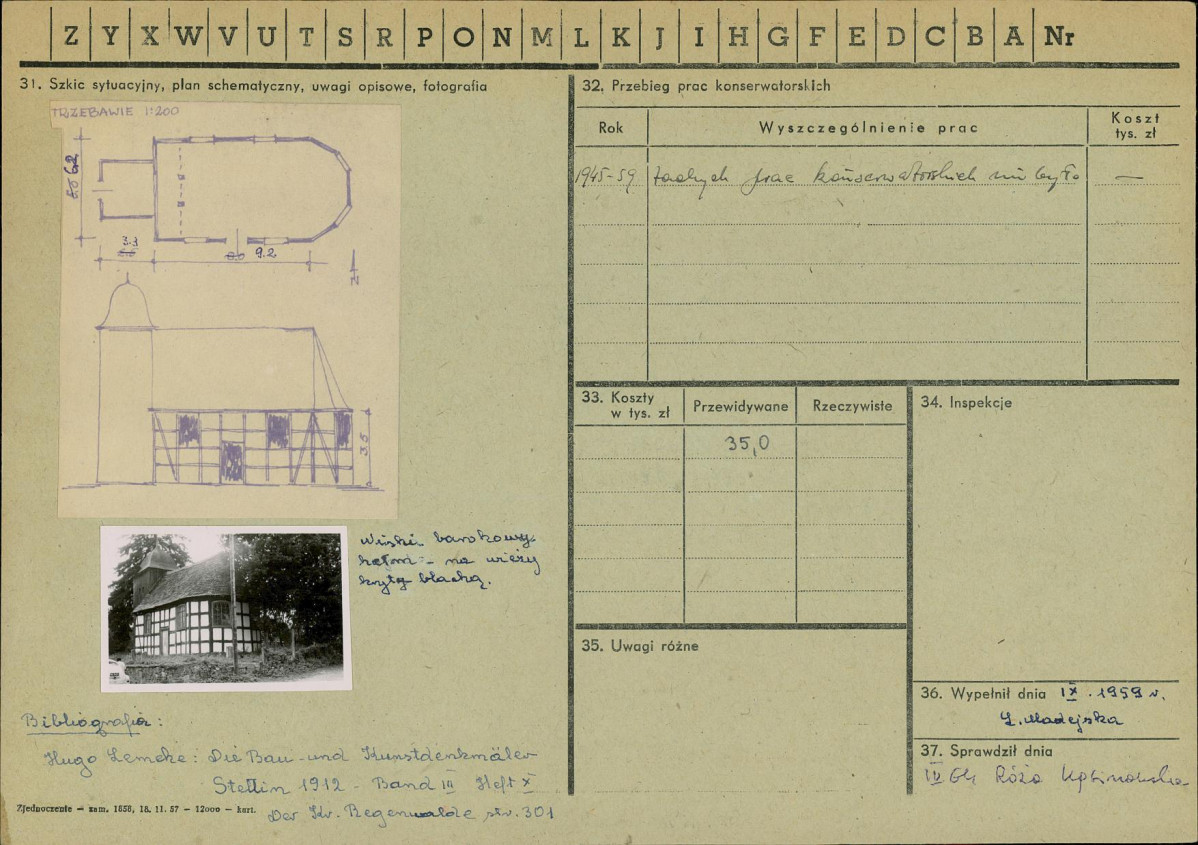 Z Y X W V U T S R P O N M L K J I H G F E D C B A Nr
31. Szkic sytuacyjny, plan schematyczny, uwagi opisowe, fotografia
TRZEBAWIE 1:200
6.2
3.3
9.2
N
3.6
barokowy
hełm - na wieży
kryty blachą.
Bibliografia:
Hugo Lemcke: Die Bau- und Kunstdenkmäler
Stettin 1912 - Band III Heft X
Der Kr. Regenwalde str. 301
Zjednoczenie — zam. 1858, 18. 11. 57 — 12000 — kart.
32. Przebieg prac konserwatorskich
Rok
Wyszczególnienie prac
Koszt
tys. zł
1945-59 żadnych prac konserwatorskich nie było —
33. Koszty
w tys. zł
Przewidywane
Rzeczywiste
35,0
34. Inspekcje
35. Uwagi różne
36. Wypełnił dnia IX. 1959 r.
Ł. Madejska
37. Sprawdził dnia
Róża